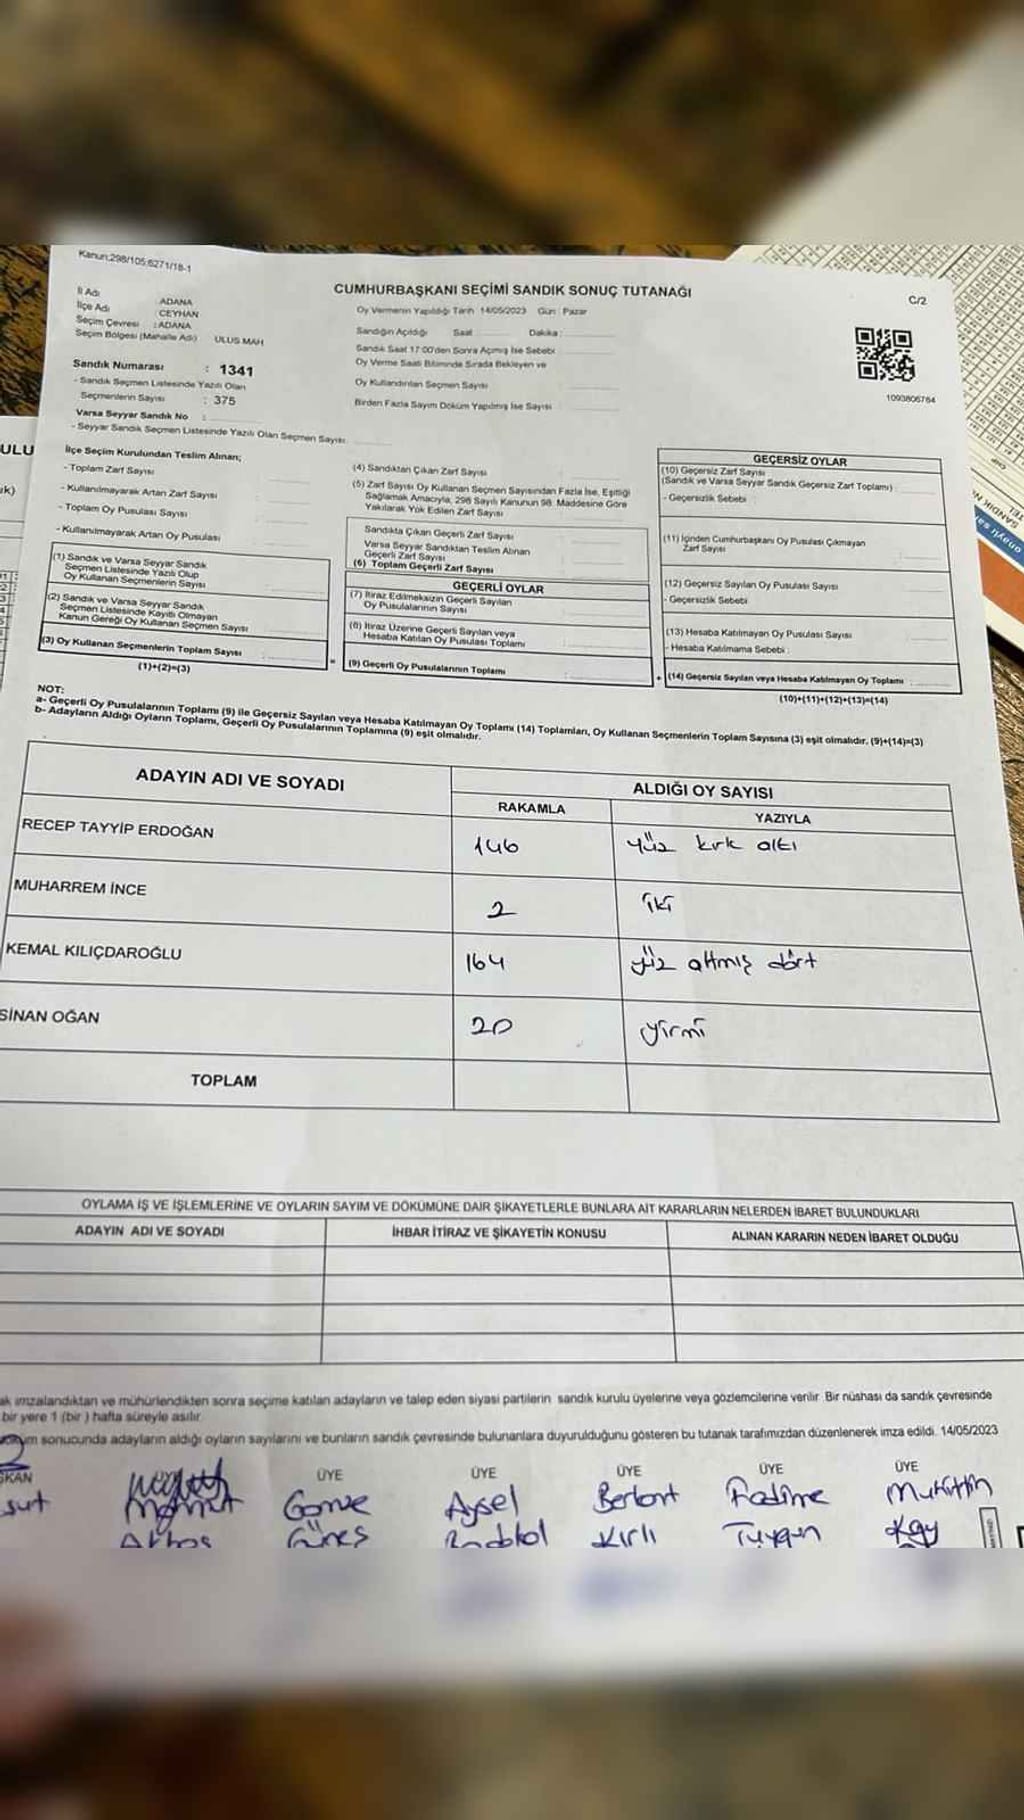 Kanun:298/105;6271/18-1
CUMHURBAŞKANI SEÇİMİ SANDIK SONUÇ TUTANAĞI
C/2
İl Adı : ADANA
İlçe Adı : CEYHAN
Seçim Çevresi : ADANA
Seçim Bölgesi (Mahalle Adı) ULUS MAH
Sandık Numarası : 1341
- Sandık Seçmen Listesinde Yazılı Olan
Seçmenlerin Sayısı : 375
Varsa Seyyar Sandık No :
- Seyyar Sandık Seçmen Listesinde Yazılı Olan Seçmen Sayısı:
Oy Vermenin Yapıldığı Tarih 14/05/2023 Gün : Pazar
Sandığın Açıldığı Saat Dakika :
Sandık Saat 17:00'den Sonra Açmış İse Sebebi
Oy Verme Saati Bitiminde Sırada Bekleyen ve
Oy Kullandırılan Seçmen Sayısı
Birden Fazla Sayım Döküm Yapılmış İse Sayısı
1093806764
İlçe Seçim Kurulundan Teslim Alınan;
- Toplam Zarf Sayısı
- Kullanılmayarak Artan Zarf Sayısı
- Toplam Oy Pusulası Sayısı
- Kullanılmayarak Artan Oy Pusulası
(1) Sandık ve Varsa Seyyar Sandık
Seçmen Listesinde Yazılı Olup
Oy Kullanan Seçmenlerin Sayısı
(2) Sandık ve Varsa Seyyar Sandık
Seçmen Listesinde Kayıtlı Olmayan
Kanun Gereği Oy Kullanan Seçmen Sayısı
(3) Oy Kullanan Seçmenlerin Toplam Sayısı
(1)+(2)=(3)
(4) Sandıktan Çıkan Zarf Sayısı
(5) Zarf Sayısı Oy Kullanan Seçmen Sayısından Fazla İse, Eşitliği
Sağlamak Amacıyla, 298 Sayılı Kanunun 98. Maddesine Göre
Yakılarak Yok Edilen Zarf Sayısı
Sandıkta Çıkan Geçerli Zarf Sayısı
Varsa Seyyar Sandıktan Teslim Alınan
Geçerli Zarf Sayısı
(6) Toplam Geçerli Zarf Sayısı
GEÇERLİ OYLAR
(7) İtiraz Edilmeksizin Geçerli Sayılan
Oy Pusulalarının Sayısı
(8) İtiraz Üzerine Geçerli Sayılan veya
Hesaba Katılan Oy Pusulası Toplamı
= (9) Geçerli Oy Pusulalarının Toplamı
GEÇERSİZ OYLAR
(10) Geçersiz Zarf Sayısı
(Sandık ve Varsa Seyyar Sandık Geçersiz Zarf Toplamı)
- Geçersizlik Sebebi
(11) İçinden Cumhurbaşkanı Oy Pusulası Çıkmayan
Zarf Sayısı
(12) Geçersiz Sayılan Oy Pusulası Sayısı
- Geçersizlik Sebebi
(13) Hesaba Katılmayan Oy Pusulası Sayısı
- Hesaba Katılmama Sebebi :
+ (14) Geçersiz Sayılan veya Hesaba Katılmayan Oy Toplamı
(10)+(11)+(12)+(13)=(14)
NOT:
a- Geçerli Oy Pusulalarının Toplamı (9) ile Geçersiz Sayılan veya Hesaba Katılmayan Oy Toplamı (14) Toplamları, Oy Kullanan Seçmenlerin Toplam Sayısına (3) eşit olmalıdır. (9)+(14)=(3)
b- Adayların Aldığı Oyların Toplamı, Geçerli Oy Pusulalarının Toplamına (9) eşit olmalıdır.
ADAYIN ADI VE SOYADI ALDIĞI OY SAYISI
RAKAMLA YAZIYLA
RECEP TAYYİP ERDOĞAN 146 yüz kırk altı
MUHARREM İNCE 2 iki
KEMAL KILIÇDAROĞLU 164 yüz altmış dört
SİNAN OĞAN 20 yirmi
TOPLAM
OYLAMA İŞ VE İŞLEMLERİNE VE OYLARIN SAYIM VE DÖKÜMÜNE DAİR ŞİKAYETLERLE BUNLARA AİT KARARLARIN NELERDEN İBARET BULUNDUKLARI
ADAYIN ADI VE SOYADI İHBAR İTİRAZ VE ŞİKAYETİN KONUSU ALINAN KARARIN NEDEN İBARET OLDUĞU
ak imzalandıktan ve mühürlendikten sonra seçime katılan adayların ve talep eden siyasi partilerin sandık kurulu üyelerine veya gözlemcilerine verilir. Bir nüshası da sandık çevresinde
bir yere 1 (bir) hafta süreyle asılır
sonucunda adayların aldığı oyların sayılarını ve bunların sandık çevresinde bulunanlara duyurulduğunu gösteren bu tutanak tarafımızdan düzenlenerek imza edildi. 14/05/2023
ŞKAN ÜYE ÜYE ÜYE ÜYE ÜYE
Gamze Aysel Berkant Fadime Muhittin
Güneş Kırlı Tuygun